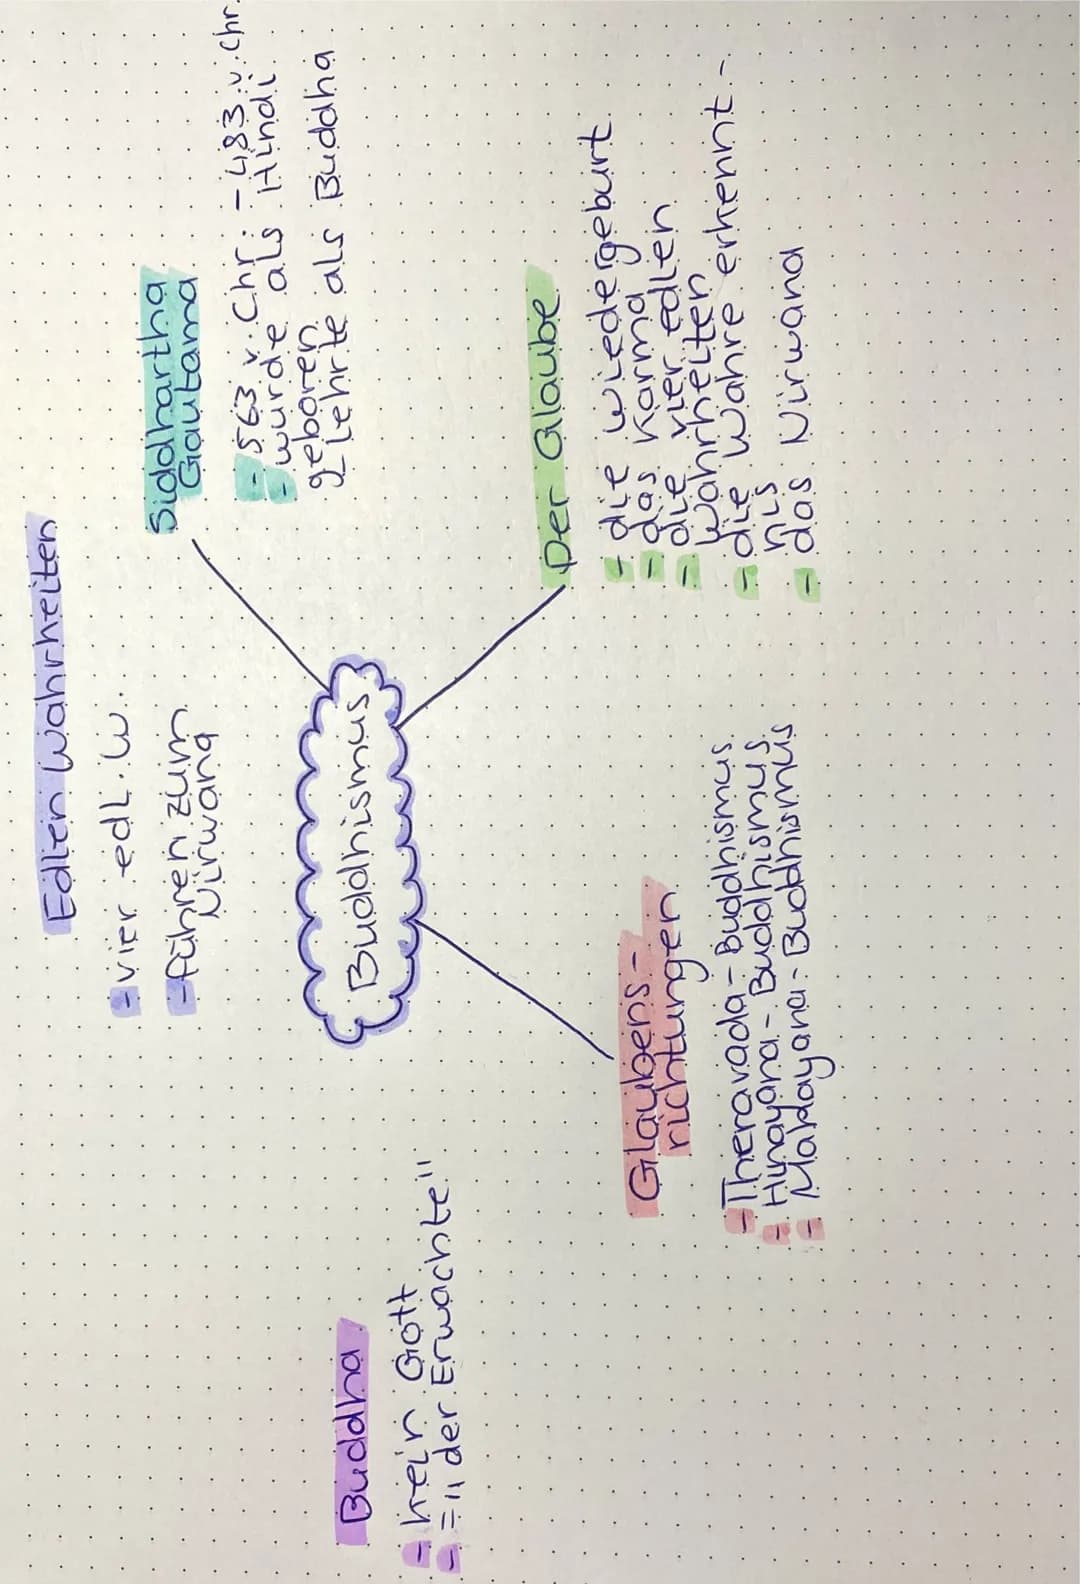 Edlen Wahrheiten
- vier edl. W.
- führen zum
Nirwana
Siddhartha
Gautama
- 563 v. Chr. - 483 v. Chr.
- wurde als Hindi
geboren
- Lehrte als Buddha
Buddhismus
Buddha
- kein Gott
- = "der Erwachte"
Glaubens-
richtungen
- Theravada - Buddhismus
- Hinayana - Buddhismus
- Mahayana - Buddhismus
Der Glaube
- die wiedergeburt
- das Karma
- die vier edlen
Wahrheiten
- die wahre erkennt-
nis
- das Nirwana